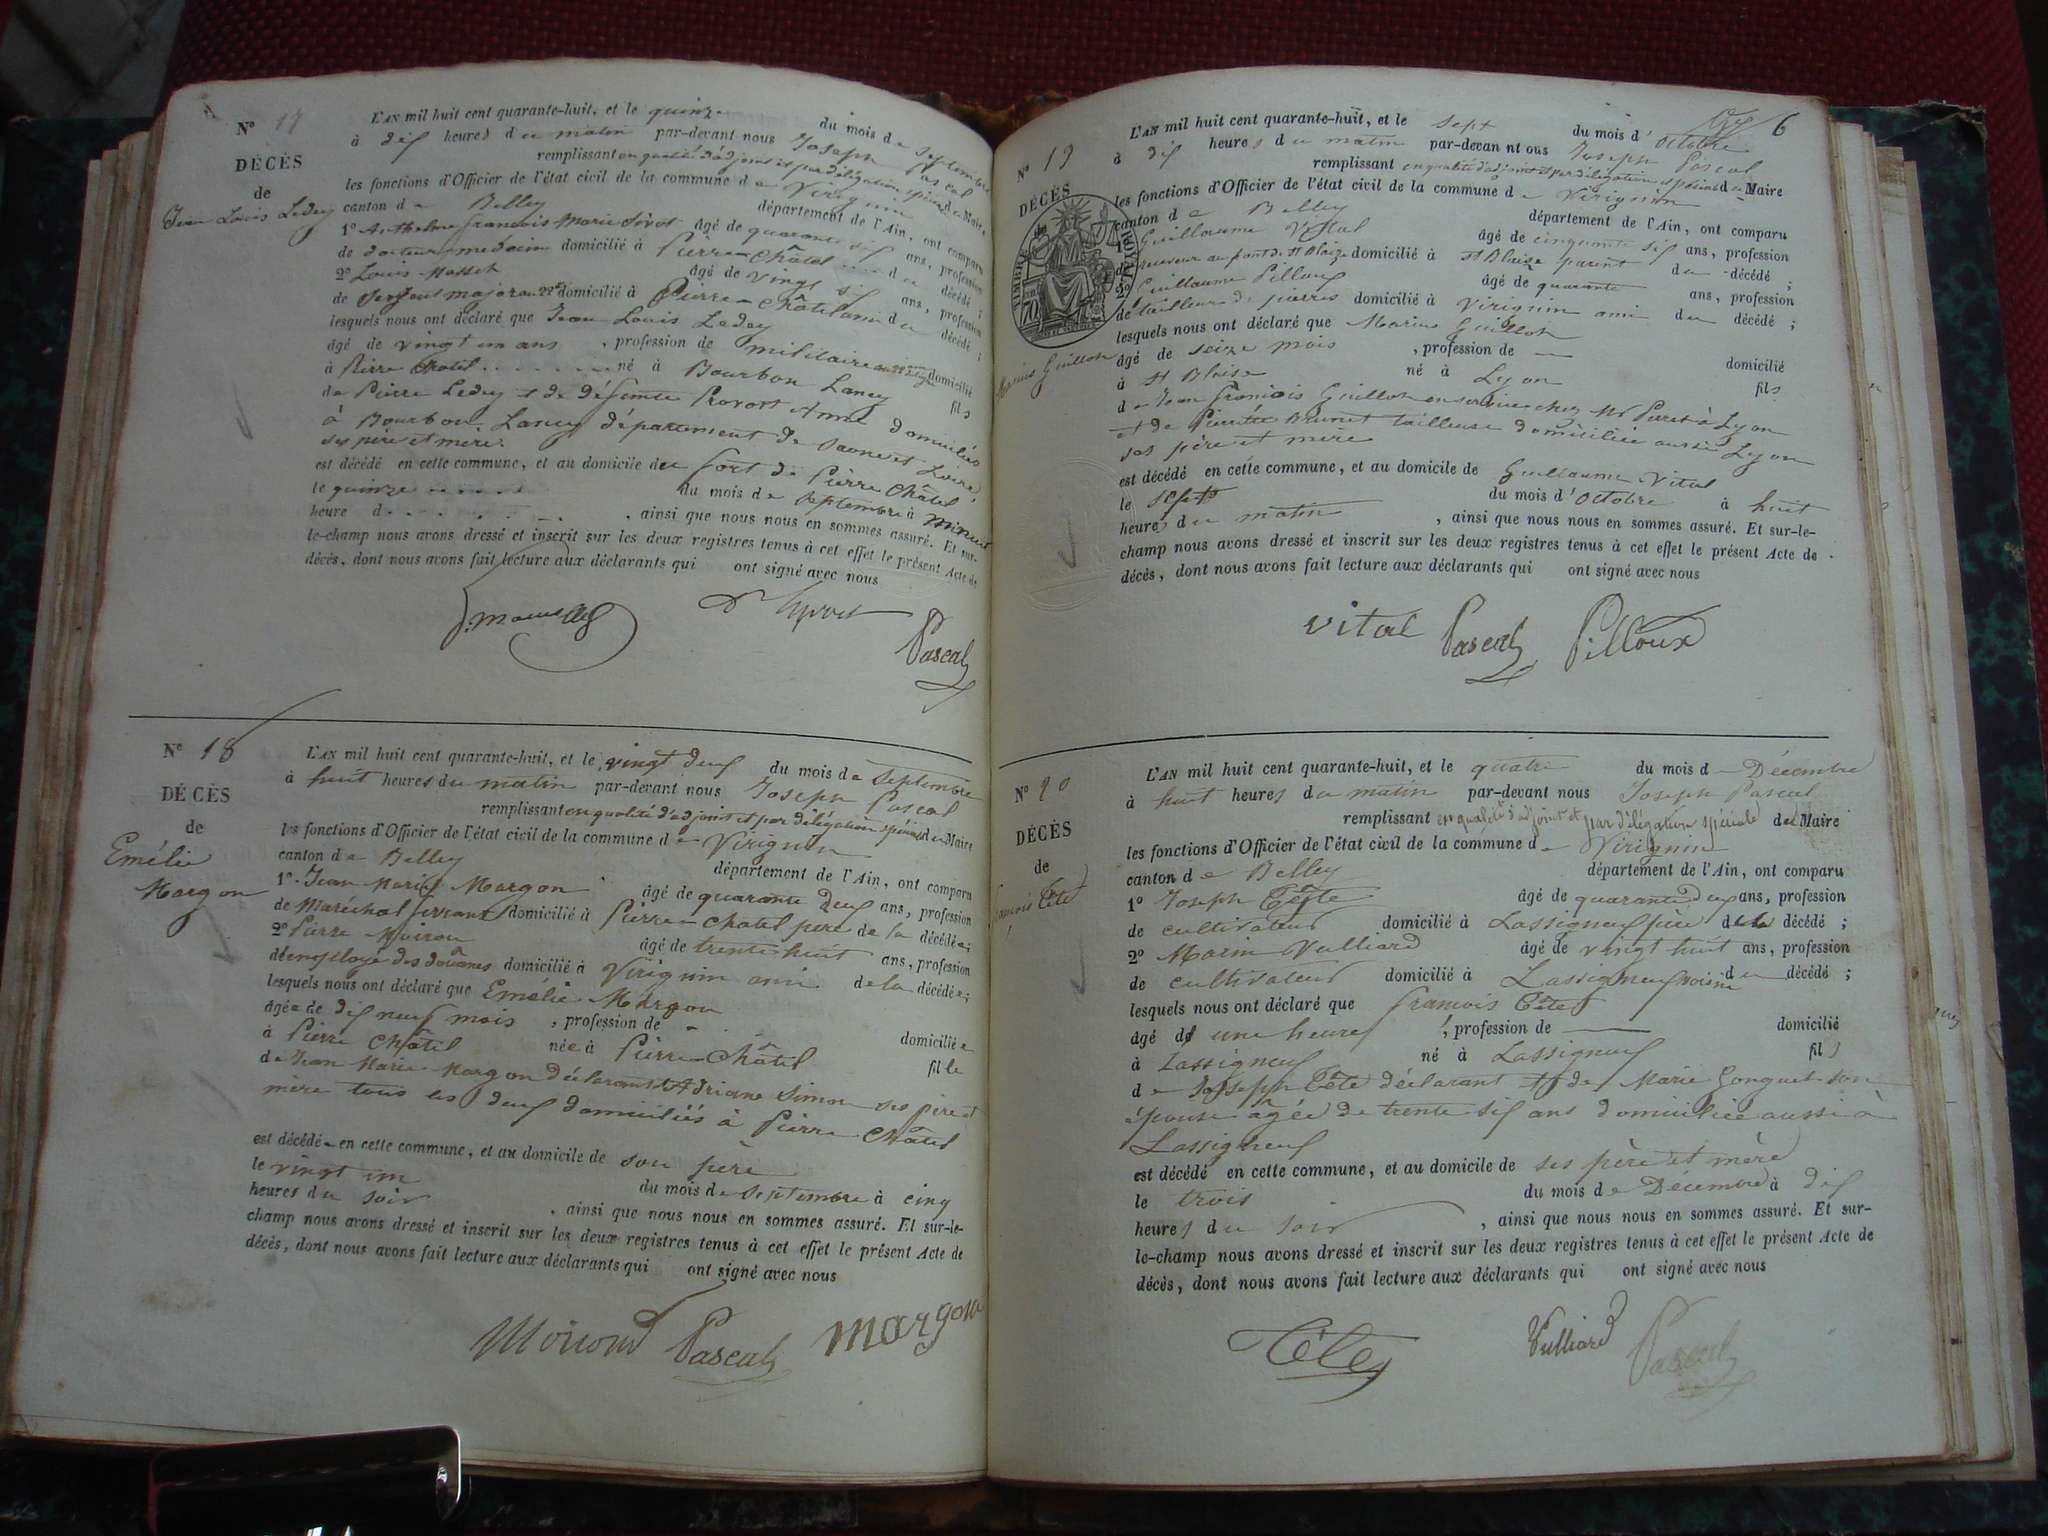 Nº 17
DÉCÈS
de
Jean Louis Ledey
L'AN mil huit cent quarante-huit, et le quinze du mois de septembre
à dix heures du matin par-devant nous Joseph Pascal
remplissant en qualité d'adjoint et par délégation spéciale du Maire
les fonctions d'Officier de l'état civil de la commune de Virignin
canton de Belley département de l'Ain, ont comparu
1º Anthelme francois Marie Sivot âgé de quarante six ans, profession
de docteur medecin domicilié à Pierre-Châtel du décédé ;
2º Louis Masset âgé de vingt six ans, profession
de sergent major au 22e domicilié à Pierre-Châtel ami du décédé ;
lesquels nous ont déclaré que Jean Louis Ledey
âgé de vingt un ans , profession de militaire au 22e domicilié
à Pierre Châtel né à Bourbon Lancy fils
de Pierre Ledey et de défunte Provost Anne domiciliés
à Bourbon Lancy département de Saone et Loire
ses père et mère
est décédé en cette commune, et au domicile du fort de Pierre Châtel
le quinze du mois de septembre à Minuit
heure d , ainsi que nous nous en sommes assuré. Et sur-
le-champ nous avons dressé et inscrit sur les deux registres tenus à cet effet le présent Acte de
décès, dont nous avons fait lecture aux déclarants qui ont signé avec nous
Pascal
Nº 18
DÉCÈS
de
Emélie
Margon
L'AN mil huit cent quarante-huit, et le vingt deux du mois de septembre
à huit heures du matin par-devant nous Joseph Pascal
remplissant en qualité d'adjoint et par délégation spéciale du Maire
les fonctions d'Officier de l'état civil de la commune de Virignin
canton de Belley département de l'Ain, ont comparu
1º Jean Marie Margon âgé de quarante deux ans, profession
de Maréchal ferrant domicilié à Pierre-Chatel père de la décédée ;
2º Pierre Moiroud âgé de trente huit ans, profession
d'employé des douânes domicilié à Virignin ami de la décédée ;
lesquels nous ont déclaré que Emélie Margon
âgée de dix neuf mois , profession de - domiciliée
à Pierre Châtel née à Pierre-Châtel fille
de Jean Marie Margon déclarant et Adriane Simon ses père et
mère tous les deux domiciliés à Pierre Châtel
est décédée en cette commune, et au domicile de son père
le vingt un du mois de septembre à cinq
heures du soir , ainsi que nous nous en sommes assuré. Et sur-le-
champ nous avons dressé et inscrit sur les deux registres tenus à cet effet le présent Acte de
décès, dont nous avons fait lecture aux déclarants qui ont signé avec nous
Moiroud Pascal margon
6
Nº 19
DÉCÈS
TIMBRE ROYAL
Marius Guillot
L'AN mil huit cent quarante-huit, et le sept du mois d'octobre
à dix heures du matin par-devant nous Joseph Pascal
remplissant en qualité d'adjoint et par délégation spéciale du Maire
les fonctions d'Officier de l'état civil de la commune de Virignin
canton de Belley département de l'Ain, ont comparu
Guillaume Vital âgé de cinquante six ans, profession
de receveur au pont de St Blaize domicilié à St Blaize parent du décédé ;
2º Guillaume Pilloux âgé de quarante ans, profession
de tailleur de pierres domicilié à Virignin ami du décédé ;
lesquels nous ont déclaré que Marius Guillot
âgé de seize mois , profession de — domicilié
à St Blaise né à Lyon fils
de Jean François Guillot en service chez Mr Perret à Lyon
et de Pierrette Brunet tailleuse domiciliée aussi à Lyon
ses père et mère
est décédé en cette commune, et au domicile de Guillaume Vital
le sept du mois d'octobre à huit
heures du matin , ainsi que nous nous en sommes assuré. Et sur-le-
champ nous avons dressé et inscrit sur les deux registres tenus à cet effet le présent Acte de
décès, dont nous avons fait lecture aux déclarants qui ont signé avec nous
vital Pascal Pilloux
Nº 20
DÉCÈS
de
francois Tête
L'AN mil huit cent quarante-huit, et le quatre du mois de Décembre
à huit heures du matin par-devant nous Joseph Pascal
remplissant en qualité d'adjoint et par délégation spéciale du Maire
les fonctions d'Officier de l'état civil de la commune de Virignin
canton de Belley département de l'Ain, ont comparu
1º Joseph Tête âgé de quarante deux ans, profession
de cultivateur domicilié à Lassigneux père du décédé ;
2º Marin Vulliard âgé de vingt huit ans, profession
de cultivateur domicilié à Lassigneux voisin du décédé ;
lesquels nous ont déclaré que francois Tête
âgé d' une heure , profession de — domicilié
à Lassigneux né à Lassigneux fils
de Joseph Tête déclarant et de Marie Gonguet son
épouse âgée de trente six ans domiciliée aussi à
Lassigneux
est décédé en cette commune, et au domicile de ses père et mère
le trois du mois de Décembre à dix
heures du soir , ainsi que nous nous en sommes assuré. Et sur-
le-champ nous avons dressé et inscrit sur les deux registres tenus à cet effet le présent Acte de
décès, dont nous avons fait lecture aux déclarants qui ont signé avec nous
Tête Vulliard Pascal